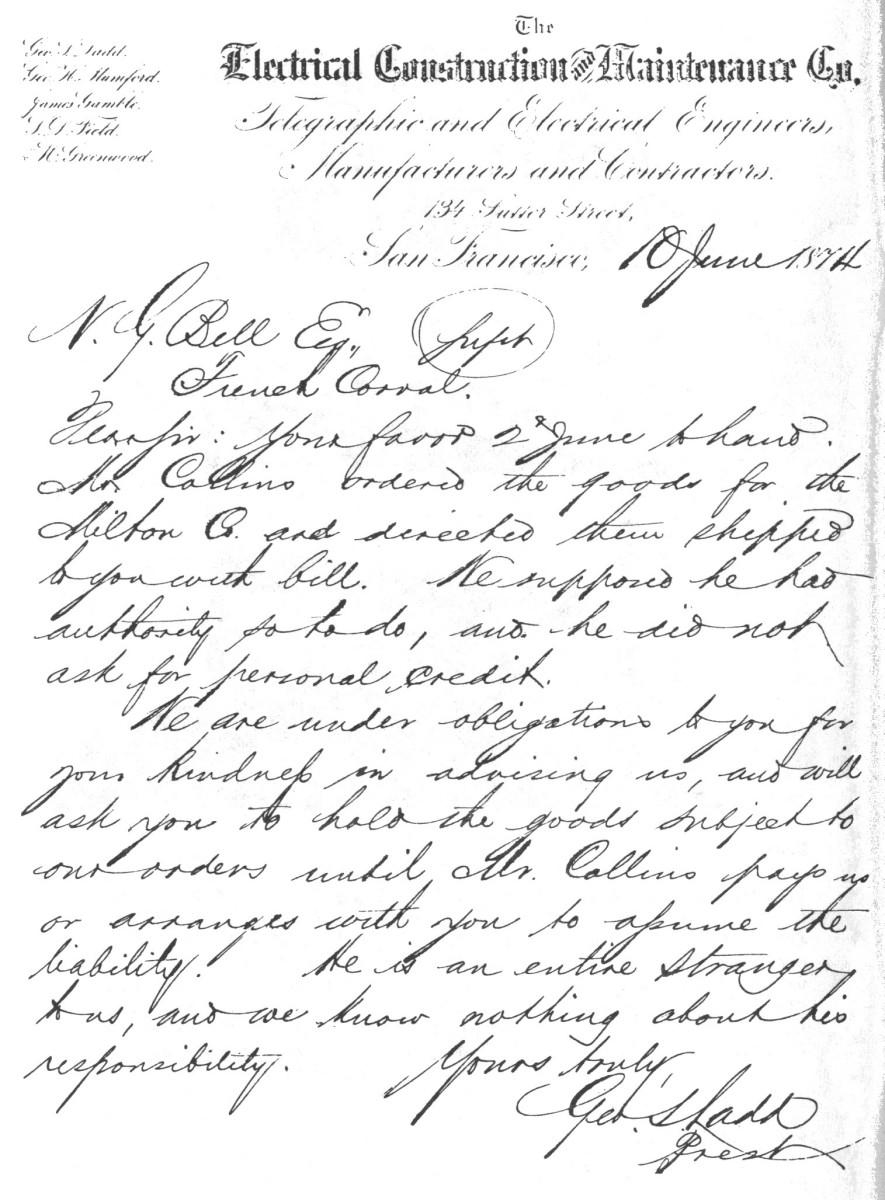 Geo. S. Ladd.
Geo. H. Mumford.
James Gamble.
S. D. Field.
H. Greenwood.
The
Electrical Construction and Maintenance Co.
Telegraphic and Electrical Engineers,
Manufacturers and Contractors.
134 Sutter Street,
San Francisco, 10 June 1874
N. G. Bell Esq., Supt
French Corral.
Dear Sir: Your favor 2d June to hand.
Mr. Collins ordered the goods for the
Milton Co. and directed them shipped
to you with bill. We supposed he had
authority so to do, and he did not
ask for personal credit.
We are under obligations to you for
your kindness in advising us, and will
ask you to hold the goods subject to
our orders until Mr. Collins pays us
or arranges with you to assume the
liability. He is an entire stranger
to us, and we know nothing about his
responsibility. Yours truly,
Geo. S. Ladd
Prest